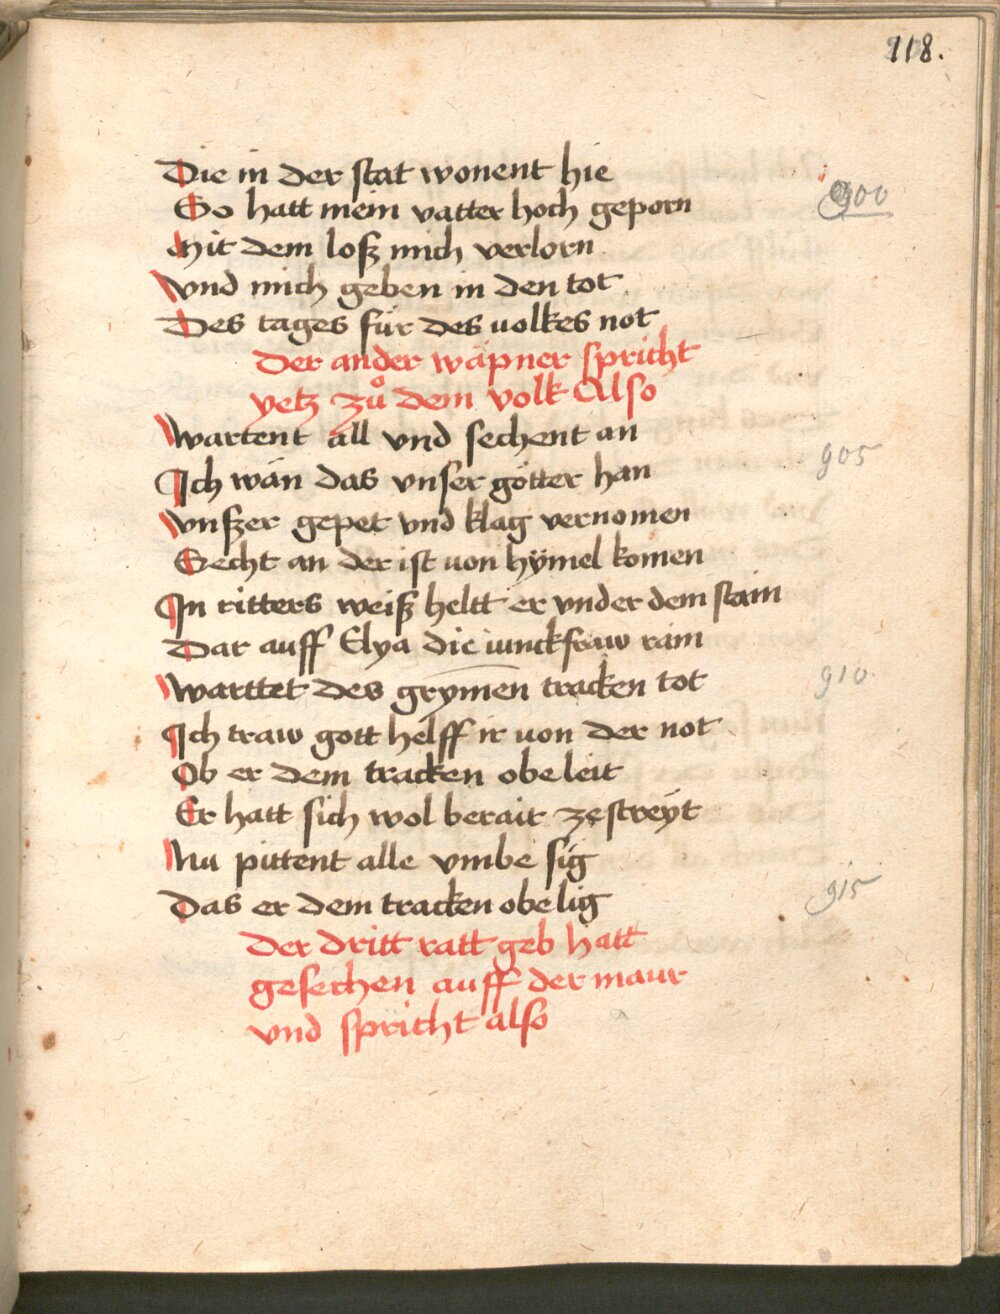 118.
Die in der stat wonent hie
900
So hatt mein vatter hoch geporn
Mit dem losz mich verlorn
Vnd mich geben in den tot
Des tages für des uolkes not
Der ander wäpner spricht
yetz zuͦ dem volk Also
Wartent all vnd sechent an
905
Ich wän das vnser götter han
Vnszer gepet vnd klag vernomen
Secht an der ist uon hÿmel komen
In ritters weisz heltt er vnder dem stain
Dar auff Elya die iunckfraw rain
Warttet des grymen tracken tot
910.
Ich traw gott helff ir uon der not
Ob er dem tracken obeleit
Er hatt sich wol berait ze streÿt
Nu pittent alle vmbe sig
915
Das er dem tracken obelig
Der dritt ratt geb hatt
gesechen auff der maur
vnd spricht also